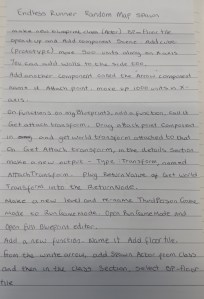 Endless Runner Random Map Spawn
Make new blueprint class (Actor) BP-Floor Tile
Open it up and Add component Scene. Add cube
(Prototype) move 500 units along on X-axis
You can add walls to the side 500.
Add another component called the Arrow component
name it Attach point. move up 1000 units in X-
axis.
Go functions in my Blueprints, add a function. Call it
Get attach transform. Drag attach point component
in and get world transform attached to that
On Get Attach transform, in the details section
make a new output - Type Transform, named
AttachTransform. Plug Return Value of Get World
Transform into the Return Node.
Make a new level and re-name ThirdPersonGame
Mode to Run Game Mode. Open Run Game Mode and
Open full Blueprint editor.
Add a new function. Name it Add floor tile.
From the white arrow, add Spawn Actor from Class
and then in the Class Section select BP-Floor
Tile.